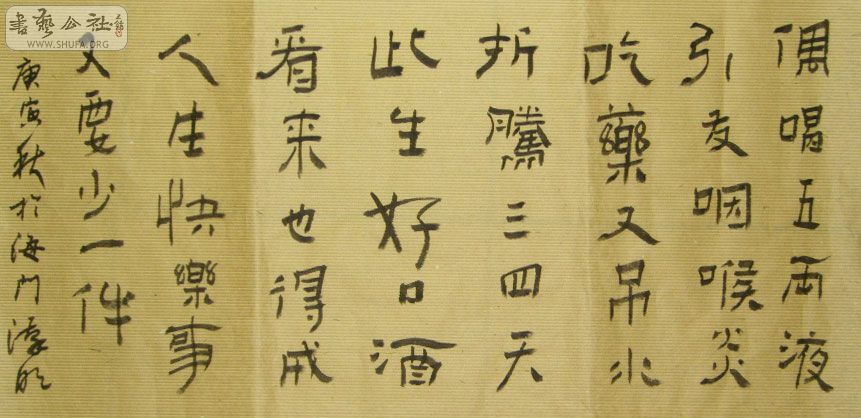 書藝公社
WWW.SHUFA.ORG
偶喝五両液
引发咽喉炎
吃藥又吊水
折騰三四天
此生好口酒
看来也得戒
人生快樂事
又要少一件
庚寅秋於海门